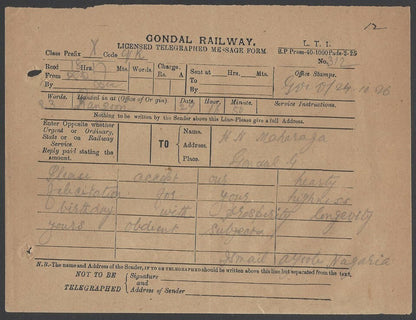 12
GONDAL RAILWAY.
LICENSED TELEGRAPHED ME-SAGE FORM
L. T. 1.
G.P.Press-40-1000 Pads-2-25
Class Prefix X Code
No. 312
Recd Hrs. Mts. Words Charge. Rs. A Sent at Hrs. Mts. Office Stamps.
From To
By By 24.10.26
Words. Handed in at (Office of Or gin) Date. Hour. Minute. Service Instructions.
23 Rangoon
Nothing to be written by the Sender above this Line-Please give a full Address.
Enter Opposite whether
Urgent or Ordinary,
State or on Railway
Service.
Reply paid stating the
amount.
TO
Name. H H Maharaja
Address.
Place. Gondal
Please accept our hearty
felicitation for your highness
birthday with prosperity longevity
yours obdient subjects
Ismail Nagaria
N.B.-The name and Address of the Sender, IF TO BE TELEGRAPHED should be written above this line but separated from the text.
NOT TO BE
TELEGRAPHED
Signature
and
Address of Sender